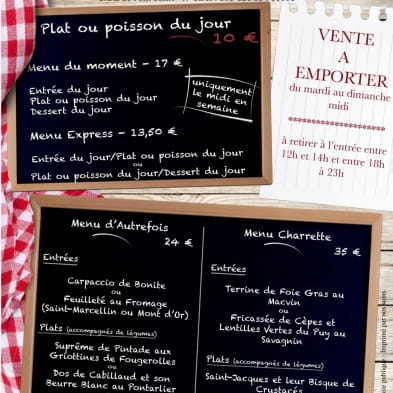 Plat ou poisson du jour
10 €
Menu du moment - 17 €
Entrée du jour
Plat ou poisson du jour
Dessert du jour
uniquement
le midi en
semaine
Menu Express - 13,50 €
Entrée du jour/Plat ou poisson du jour
ou
Plat ou poisson du jour/Dessert du jour
VENTE
A
EMPORTER
du mardi au dimanche
midi
********************
à retirer à l'entrée entre
12h et 14h et entre 18h
à 23h
Menu d'Autrefois
24 €
Entrées
Carpaccio de Bonite
ou
Feuilleté au Fromage
(Saint-Marcellin ou Mont d'Or)
Plats (accompagnés de légumes)
Suprême de Pintade aux
Griottines de Fougerolles
ou
Dos de Cabillaud et son
Beurre Blanc au Pontarlier
Menu Charrette
35 €
Entrées
Terrine de Foie Gras au
Macvin
ou
Fricassée de Cèpes et
Lentilles Vertes du Puy au
Savagnin
Plats (accompagnés de légumes)
Saint-Jacques et leur Bisque de
Crustacés
oie publique - Imprimé par nos soins